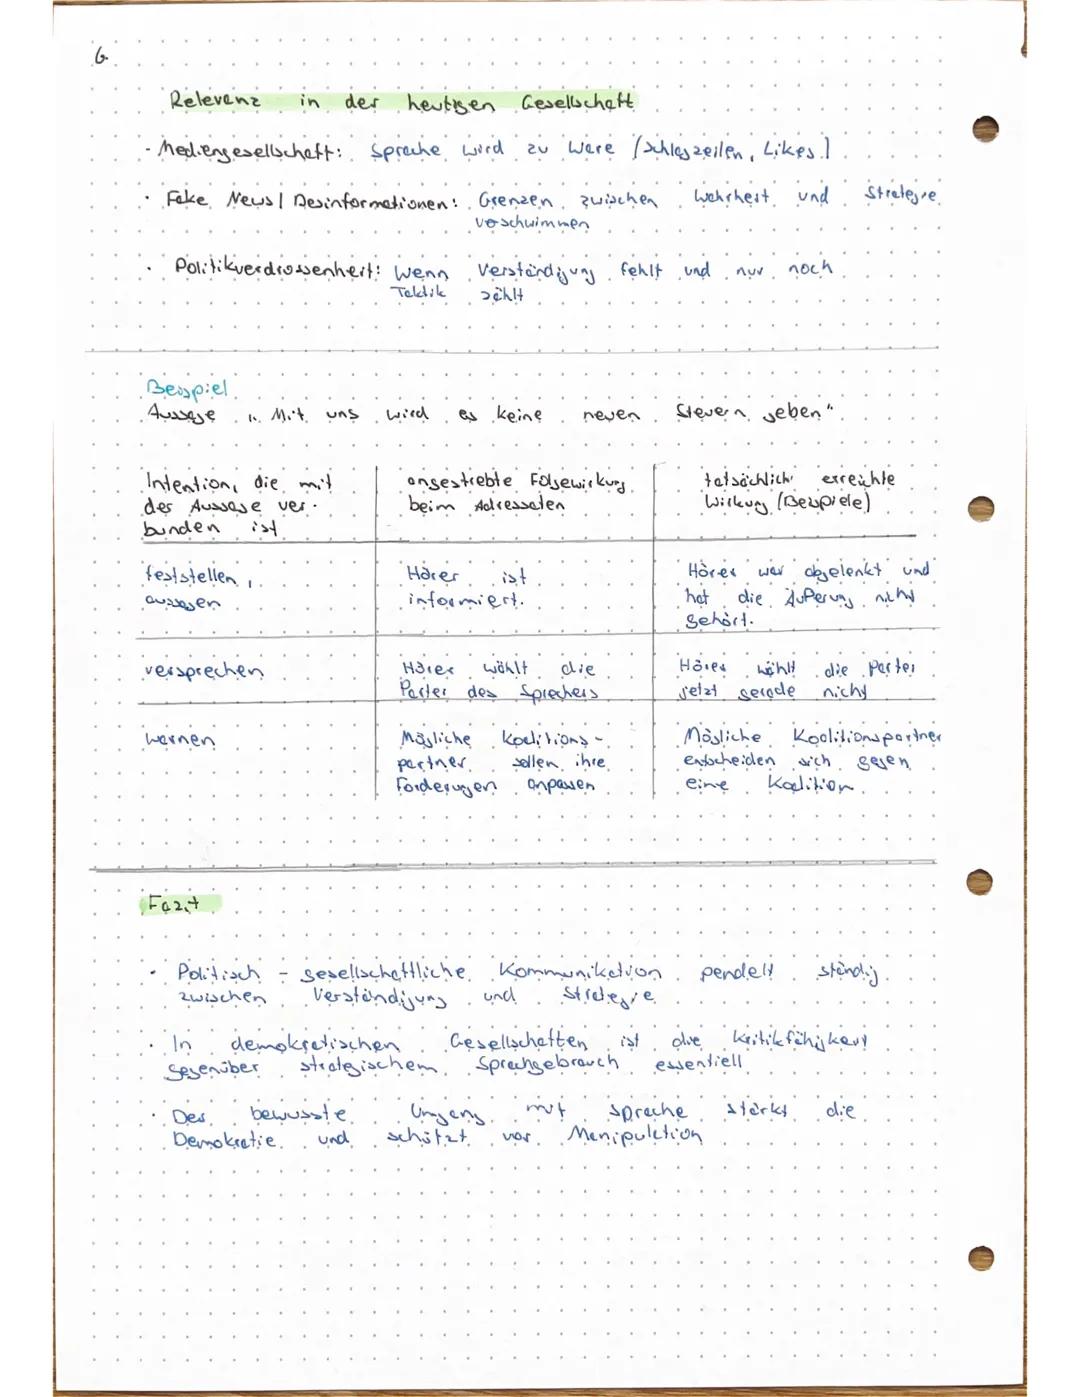 6.
Relevanz in der heutigen Gesellschaft
- Mediengesellschaft: Sprache wird zu Ware (Schlagzeilen, Likes)
· Fake News / Desinformationen: Grenzen zwischen Wahrheit und Strategie
verschwimmen
· Politikverdrossenheit: Wenn Verständigung fehlt und nur noch
Taktik zählt
Beispiel
Aussage „Mit uns wird es keine neuen Steuern geben"
Intention, die mit
der Aussage ver-
bunden ist
angestrebte Folgewirkung
beim Adressaten
tatsächlich erreichte
Wirkung (Beispiele)
feststellen,
aussagen
Hörer ist
informiert.
Hörer war abgelenkt und
hat die Äußerung nicht
gehört.
versprechen
Hörer wählt die
Partei des Sprechers
Hörer wählt die Partei
jetzt gerade nicht
warnen
Mögliche Koalitions-
partner sollen ihre
Forderungen anpassen
Mögliche Koalitionspartner
entscheiden sich gegen
eine Koalition
Fazit
· Politisch - gesellschaftliche Kommunikation pendelt ständig
zwischen Verständigung und Strategie
· In demokratischen Gesellschaften ist die Kritikfähigkeit
gegenüber strategischem Sprachgebrauch essentiell
· Der bewusste Umgang mit Sprache stärkt die
Demokratie und schützt vor Manipulation